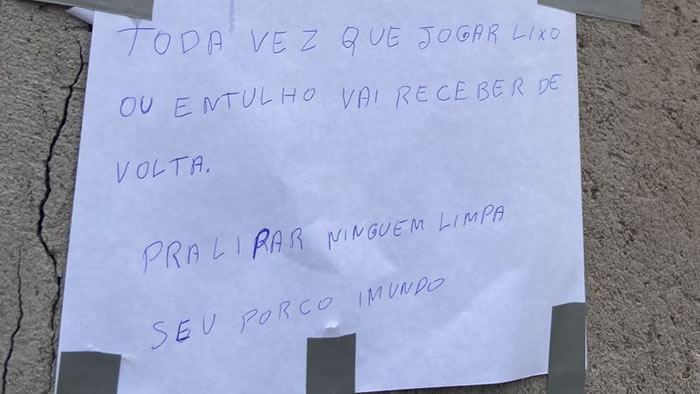 TODA VEZ QUE JOGAR LIXO
OU ENTULHO VAI RECEBER DE
VOLTA.
PRALIRAR NINGUEM LIMPA
SEU PORCO IMUNDO